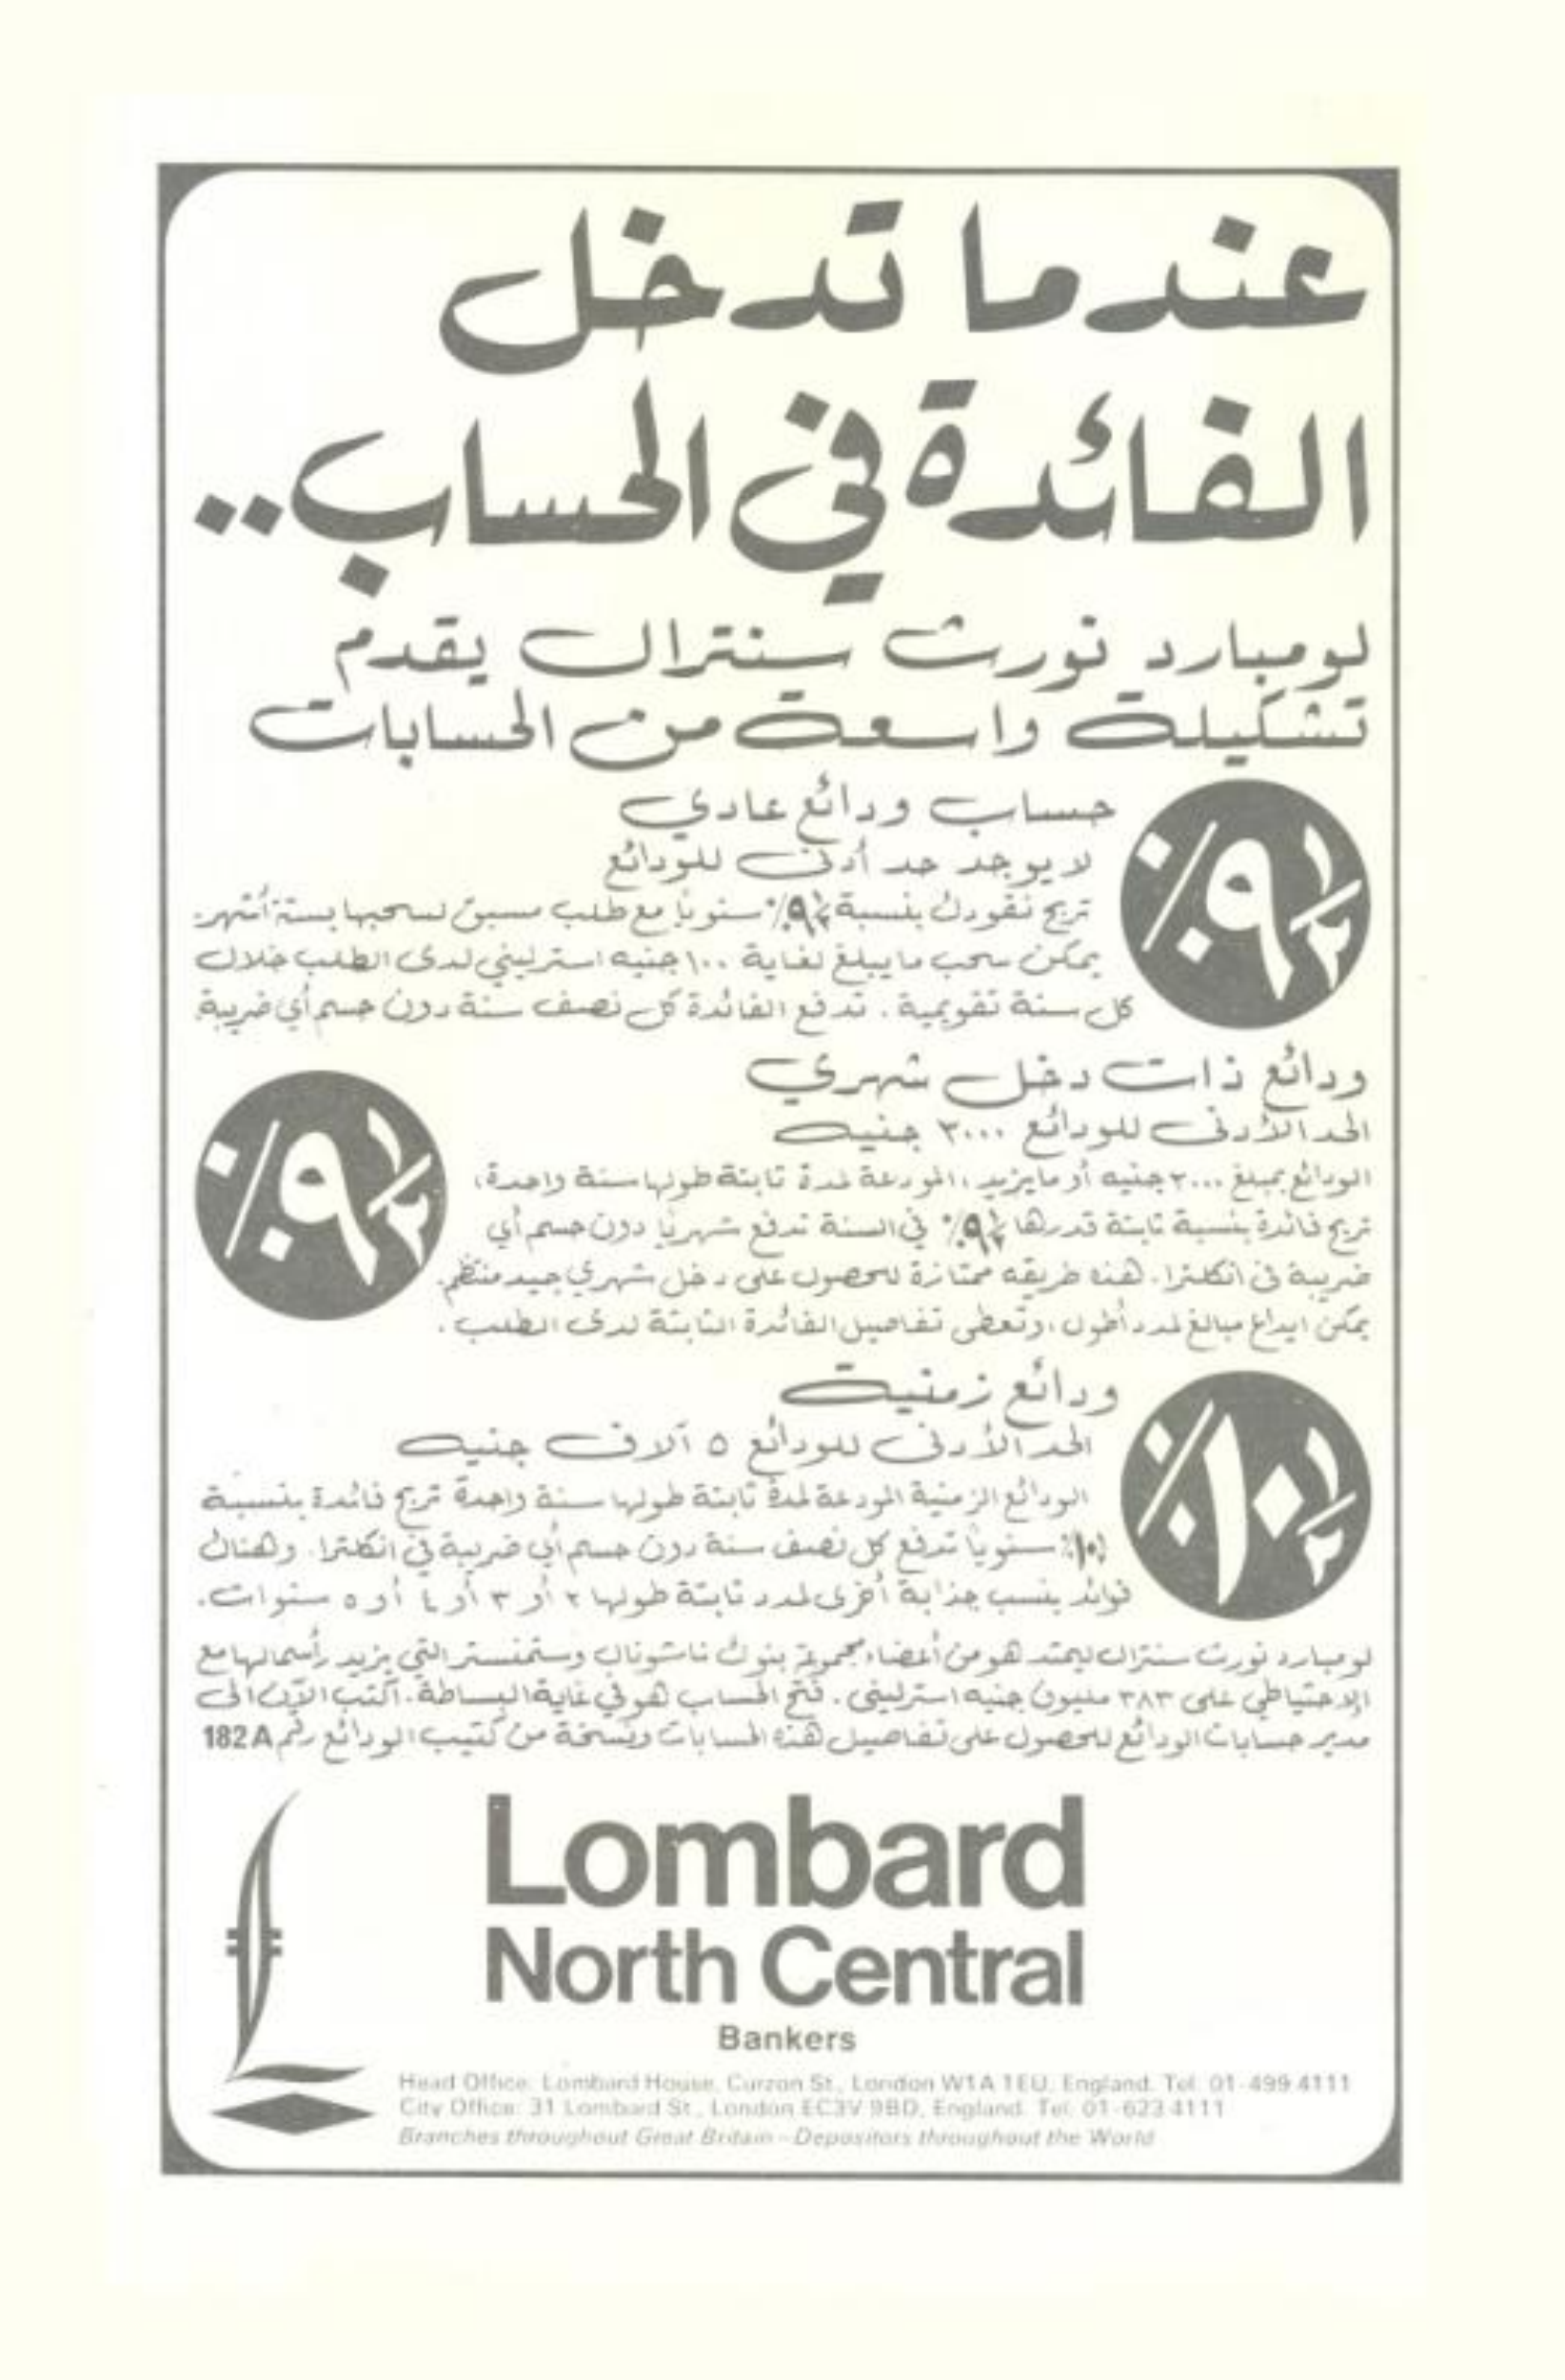 عندما تدخل
الفائدة في الحساب..
لومبارد نورث سنترال يقدم
تشكيلة واسعة من الحسابات
٩ ١/٢ ٪
حساب ودائع عادي
لا يوجد حد أدنى للودائع
تربح نقودك بنسبة ٩ ١/٢ ٪ سنوياً مع طلب مسبق لسحبها بستة أشهر.
يمكن سحب ما يبلغ لغاية ١٠٠ جنيه استرليني لدى الطلب خلال
كل سنة تقويمية. تدفع الفائدة كل نصف سنة دون حسم أي ضريبة.
ودائع ذات دخل شهري
٩ ١/٢ ٪
الحد الأدنى للودائع ٣٠٠٠ جنيه
الودائع بمبلغ ٢٠٠٠ جنيه أو ما يزيد، المودعة لمدة ثابتة طولها سنة واحدة،
تربح فائدة بنسبة ثابتة قدرها ٩ ١/٢ ٪ في السنة تدفع شهرياً دون حسم أي
ضريبة في انكلترا. هذه طريقه ممتازة للحصول على دخل شهري جيد منتظم.
يمكن ايداع مبالغ لمدد أطول، وتعطى تفاصيل الفائدة الثابتة لدى الطلب.
١٠ ١/٢ ٪
ودائع زمنية
الحد الأدنى للودائع ٥ آلاف جنيه
الودائع الزمنية المودعة لمدة ثابتة طولها سنة واحدة تربح فائدة بنسبة
سنوياً تدفع كل نصف سنة دون حسم أي ضريبة في انكلترا. وهناك
فوائد بنسب جذابة أخرى لمدد ثابتة طولها ٢ أو ٣ أو ٤ أو ٥ سنوات.
لومبارد نورث سنترال ليمتد هو من أعضاء مجموعة بنوك ناشونال وستمنستر التي يزيد رأسمالها مع
الإحتياطي على ٣٨٣ مليون جنيه استرليني. فتح الحساب هو في غاية البساطة. اكتب الآن الى
مدير حسابات الودائع للحصول على تفاصيل هذه الحسابات ونسخة من كتيب الودائع رقم 182A
Lombard
North Central
Bankers
Head Office: Lombard House, Curzon St., London W1A 1EU, England. Tel: 01-499 4111
City Office: 31 Lombard St., London EC3V 9BD, England. Tel: 01-623 4111
Branches throughout Great Britain - Depositors throughout the World